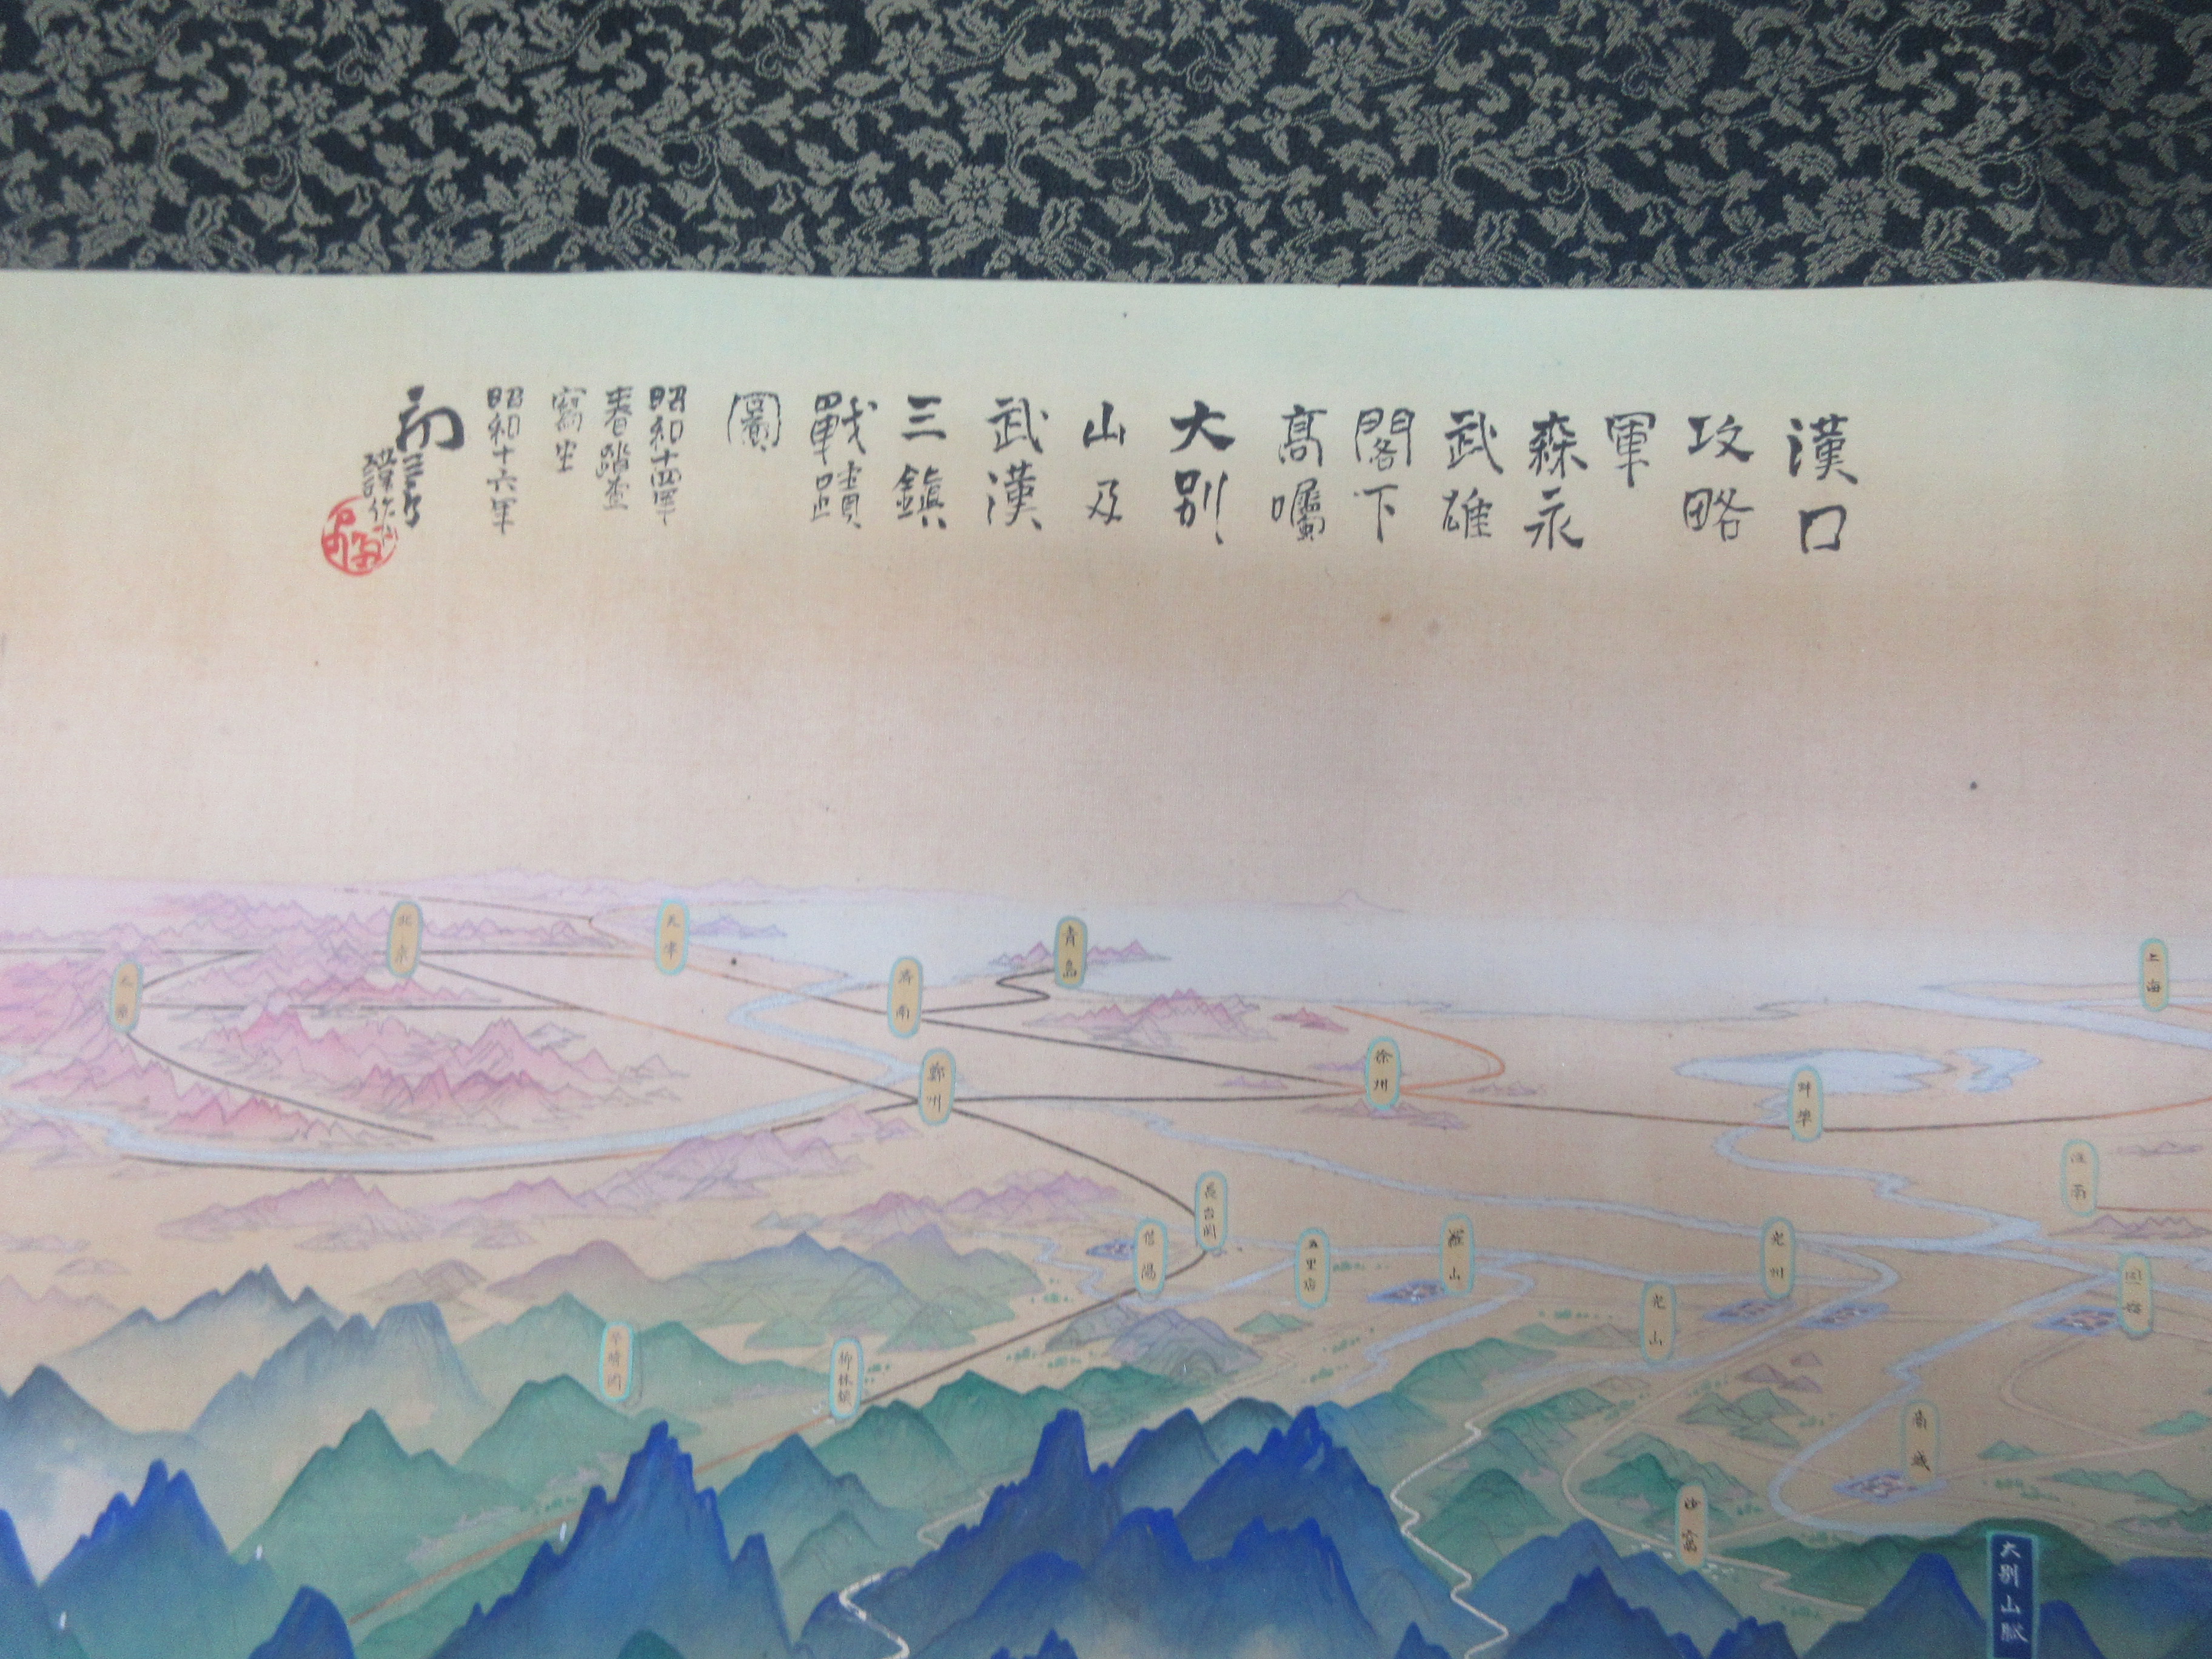 漢口
攻略
軍
森永
武雄
閣下
高囑
大別
山及
武漢
三鎮
戰蹟
圖
昭和十四年
春踏査
寫生
昭和十六年
北京
天津
青島
上海
濟南
太原
鄭州
徐州
蚌埠
長台關
信陽
五里店
羅山
光州
光山
固始
柳林鎮
商城
沙窩
大別山脈